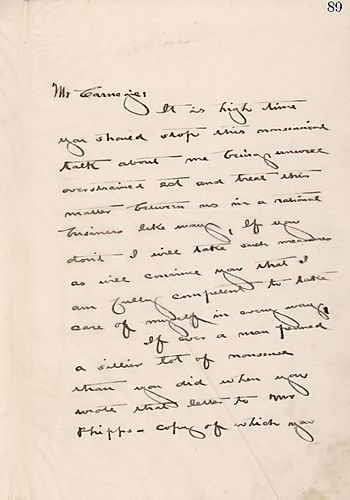 89
Mr Carnegie;
It is high time
you should stop this nonsensical
talk about me being unwell
overstrained ect and treat this
matter between us in a rational
business like way, If you
don't I will take such measures
as will convince you that I
am fully competent to take
care of myself in every way.
If ever a man penned
a sillier lot of nonsense
than you did when you
wrote that letter to Mr
Phipps - copy of which you